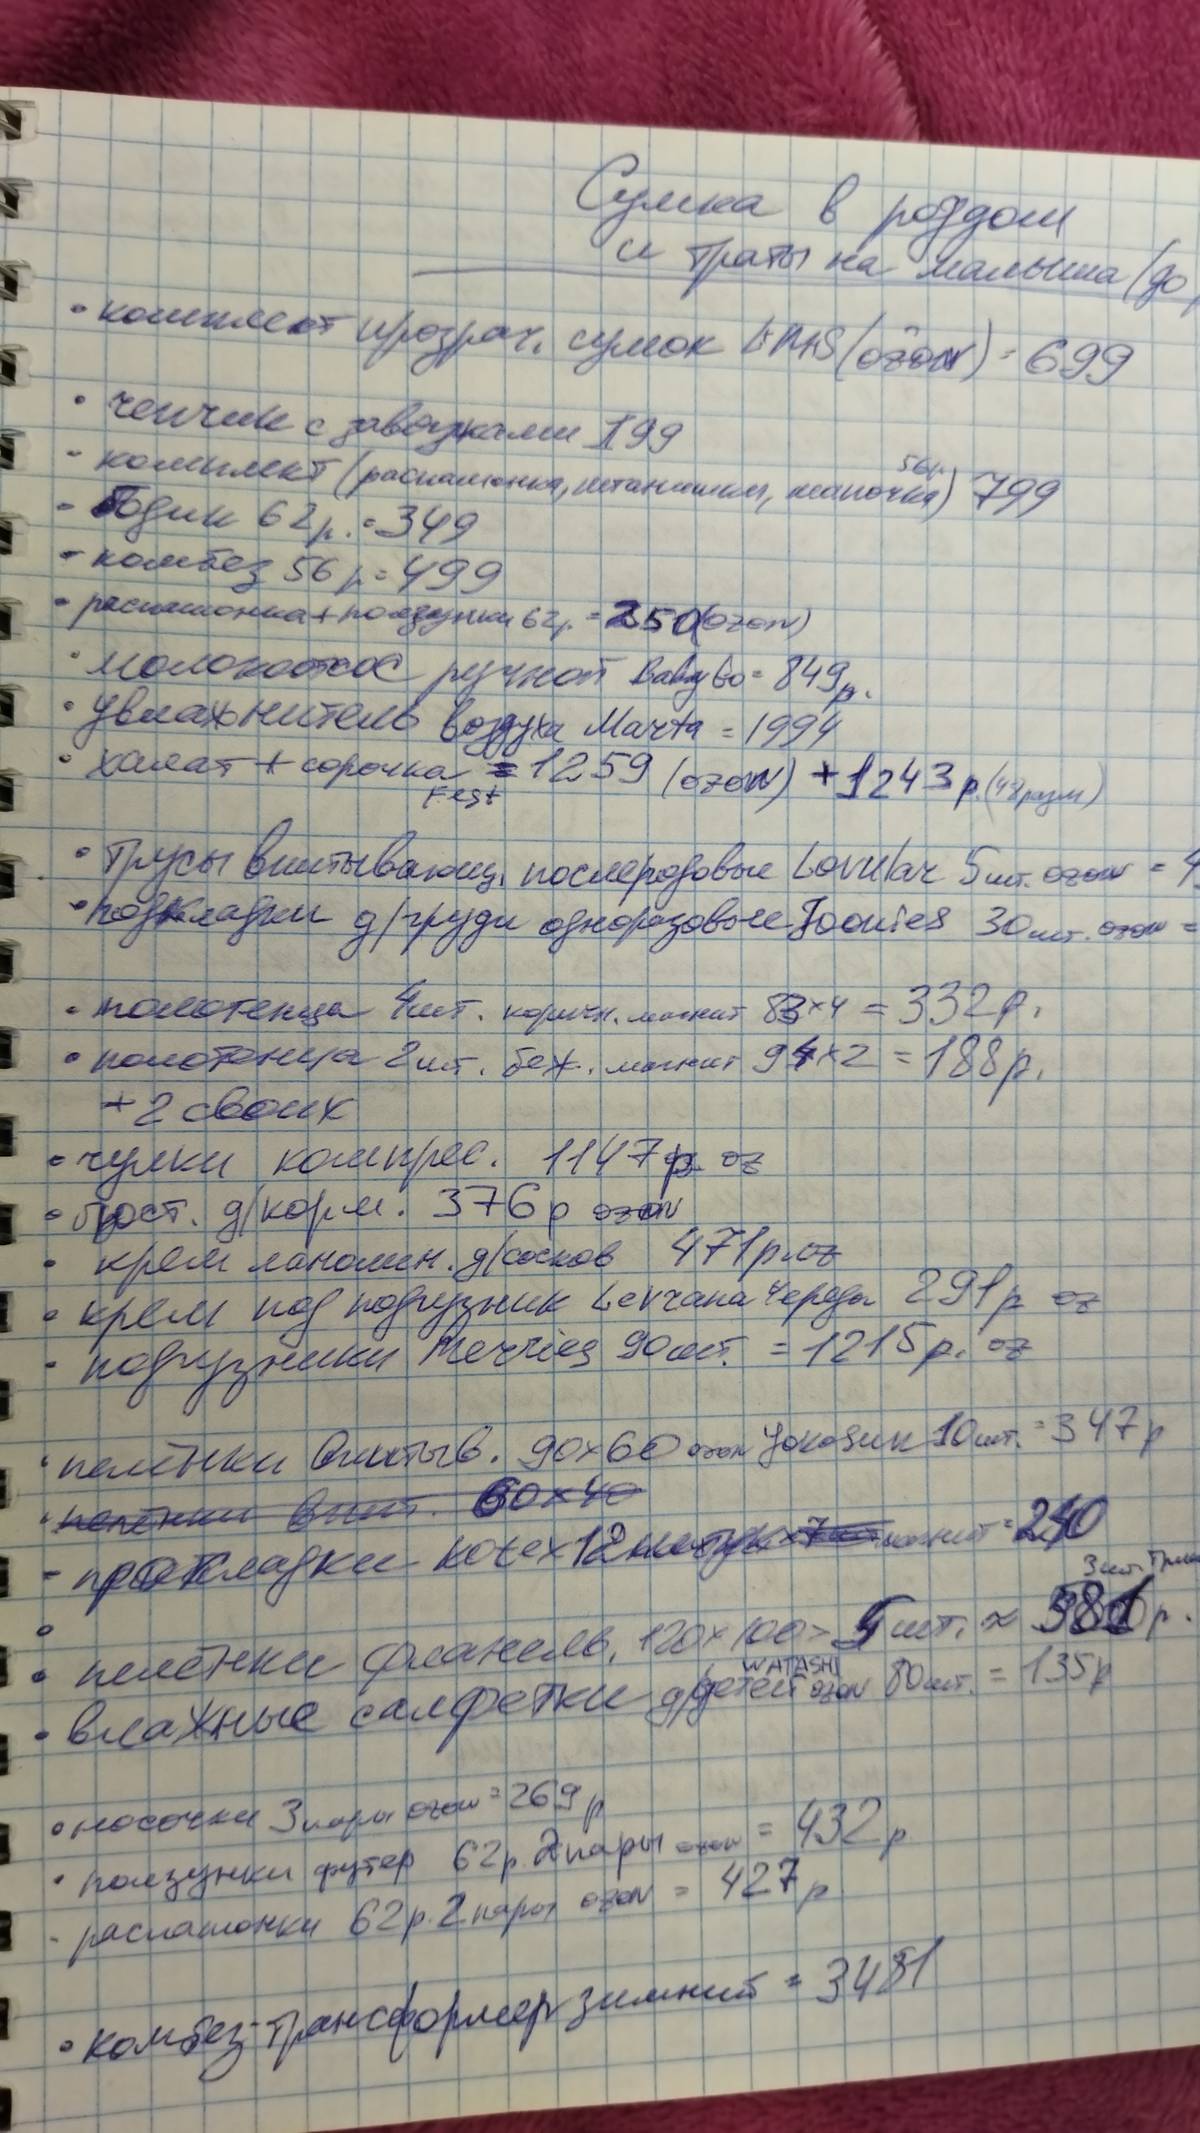 Сумка в роддом
и траты на малыша (до
• комплект прозрач. сумок (ozon) = 699
• чепчик с завязками 199
• комплект (распашонка, штанишки, шапочка) 56р. 799
- Бодик 62р. = 349
- комбез 56р = 499
• распашонка + ползунки 62р. = 250 (ozon)
• молокоотсос ручной BabyGo = 849р.
• увлажнитель воздуха Marta = 1994
• халат + сорочка = 1259 (ozon) + 1243р. (48разм)
Fest
• трусы впитывающ. послеродовые Lovular 5шт. ozon =
• подкладки д/груди одноразовые Joonies 30шт. ozon =
• полотенца 4шт. коричн. магнит 83х4 = 332р.
• полотенца 2шт. беж. магнит 94х2 = 188р.
+ 2 своих
• чулки компрес. 1147р oz
• бюст. д/корм. 376р ozon
• крем ланолин. д/сосков 471р. oz
• крем под подгузник Levrana Череда 291р oz
• подгузники Merries 90шт. = 1215р. oz
• пелёнки впитыв. 90х60 ozon YokoSun 10шт. = 347р
• пелёнки впит. 60х40
- прокладки kotex 12 магнит = 240
3шт.
• пелёнки фланель. 120х100 5шт. ≈ 381р.
WATASHI
• влажные салфетки д/детей ozon 80шт. = 135р
• носочки 3 пары ozon = 269р
• ползунки футер 62р. 2 пары ozon = 432р
- распашонки 62р. 2 пары ozon = 427р
• комбез-трансформер зимний = 3481